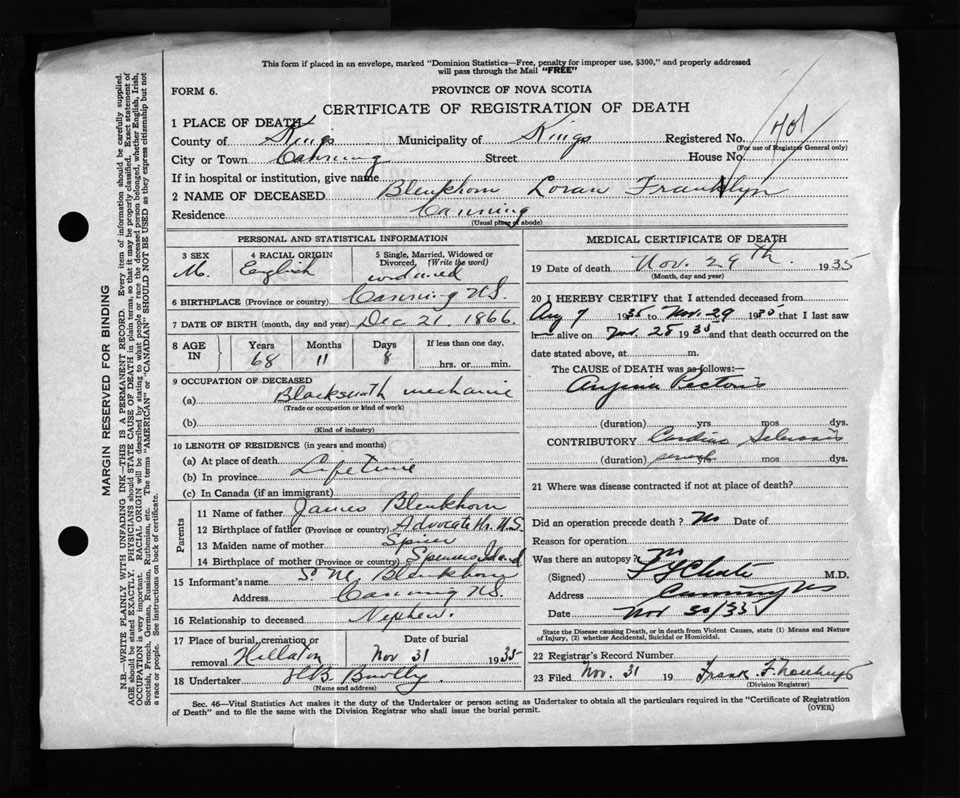 This form if placed in an envelope, marked "Dominion Statistics—Free, penalty for improper use, $300," and properly addressed
will pass through the Mail "FREE"
FORM 6.
PROVINCE OF NOVA SCOTIA
CERTIFICATE OF REGISTRATION OF DEATH
1 PLACE OF DEATH
County of Kings Municipality of Kings Registered No. 401
(For use of Registrar General only)
City or Town Canning Street House No.
If in hospital or institution, give name
2 NAME OF DECEASED Blenkhorn Loran Franklyn
Residence Canning
(Usual place of abode)
PERSONAL AND STATISTICAL INFORMATION
3 SEX 4 RACIAL ORIGIN 5 Single, Married, Widowed or
Divorced, (Write the word)
M. English widowed
6 BIRTHPLACE (Province or country) Canning N.S.
7 DATE OF BIRTH (month, day and year) Dec 21. 1866.
8 AGE IN Years Months Days If less than one day,
68 11 8 hrs. or min.
9 OCCUPATION OF DECEASED
(a) Blacksmith mechanic
(Trade or occupation or kind of work)
(b)
(Kind of industry)
10 LENGTH OF RESIDENCE (in years and months)
(a) At place of death Life time
(b) In province
(c) In Canada (if an immigrant)
Parents
11 Name of father James Blenkhorn
12 Birthplace of father (Province or country) Advocate Hr. N.S.
13 Maiden name of mother Spicer
14 Birthplace of mother (Province or country) Spencers Island
15 Informant's name Blenkhorn
Address Canning N.S.
16 Relationship to deceased Nephew.
17 Place of burial, cremation or Date of burial
removal Hillaton Nov 31 1935
18 Undertaker
(Name and address)
MEDICAL CERTIFICATE OF DEATH
19 Date of death Nov. 29th. 1935
(Month, day and year)
20 I HEREBY CERTIFY that I attended deceased from
Aug 7 1935 to Nov. 29 1935 that I last saw
h alive on Nov. 28 1935 and that death occurred on the
date stated above, at m.
The CAUSE of DEATH was as follows:—
Angina Pectoris
(duration) yrs. mos. dys.
CONTRIBUTORY Cardiac Sclerosis
(duration) several yrs. mos. dys.
21 Where was disease contracted if not at place of death?
Did an operation precede death? No Date of
Reason for operation
Was there an autopsy? no
(Signed) M.D.
Address Canning NS
Date Nov 30/35
State the Disease causing Death, or in death from Violent Causes, state (1) Means and Nature
of Injury, (2) whether Accidental, Suicidal or Homicidal.
22 Registrar's Record Number
23 Filed Nov. 31 19 Frank F.
(Division Registrar)
Sec. 46—Vital Statistics Act makes it the duty of the Undertaker or person acting as Undertaker to obtain all the particulars required in the "Certificate of Registration
of Death" and to file the same with the Division Registrar who shall issue the burial permit. (OVER)
MARGIN RESERVED FOR BINDING
N.B.—WRITE PLAINLY WITH UNFADING INK—THIS IS A PERMANENT RECORD. Every item of information should be carefully supplied.
AGE should be stated EXACTLY. PHYSICIANS should STATE CAUSE OF DEATH in plain terms, so that it may be properly classified. Exact statement of
OCCUPATION is very important. RACIAL ORIGIN will be described by stating to what people or race the deceased person belonged, whether English, Irish,
Scottish, French, German, Russian, Ruthenian, etc. The terms "AMERICAN" or "CANADIAN" SHOULD NOT BE USED as they express citizenship but not
a race or people. See instructions on back of certificate.